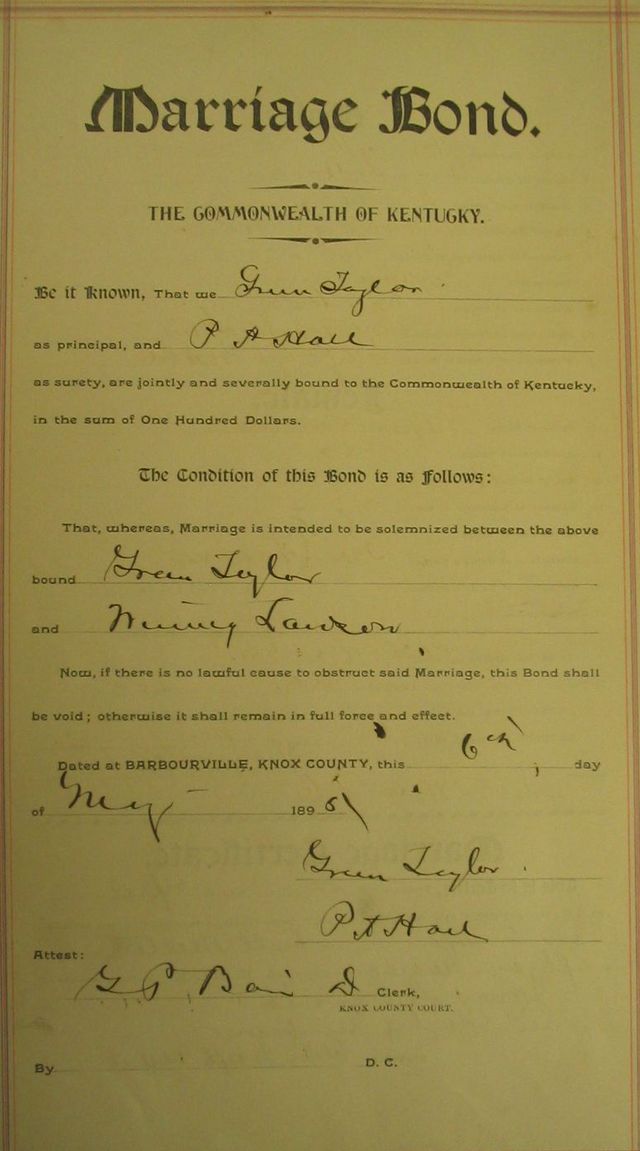 Marriage Bond.
THE COMMONWEALTH OF KENTUCKY.
Be it Known, That we Green Taylor
as principal, and P A Hall
as surety, are jointly and severally bound to the Commonwealth of Kentucky,
in the sum of One Hundred Dollars.
The Condition of this Bond is as Follows:
That, whereas, Marriage is intended to be solemnized between the above
bound Green Taylor
and Winney Lawson
Now, if there is no lawful cause to obstruct said Marriage, this Bond shall
be void; otherwise it shall remain in full force and effect.
Dated at BARBOURVILLE, KNOX COUNTY, this 6th day
of May 189
Green Taylor
P A Hall
Attest:
G P Bain D Clerk,
KNOX COUNTY COURT.
By D. C.